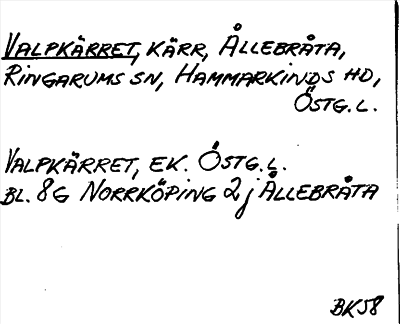 VALPKÄRRET, KÄRR, ÅLLEBRÅTA,
RINGARUMS SN, HAMMARKINDS HD,
ÖSTG.L.
VALPKÄRRET, EK. ÖSTG.L.
BL. 8G NORRKÖPING 2j ÅLLEBRÅTA
BK58